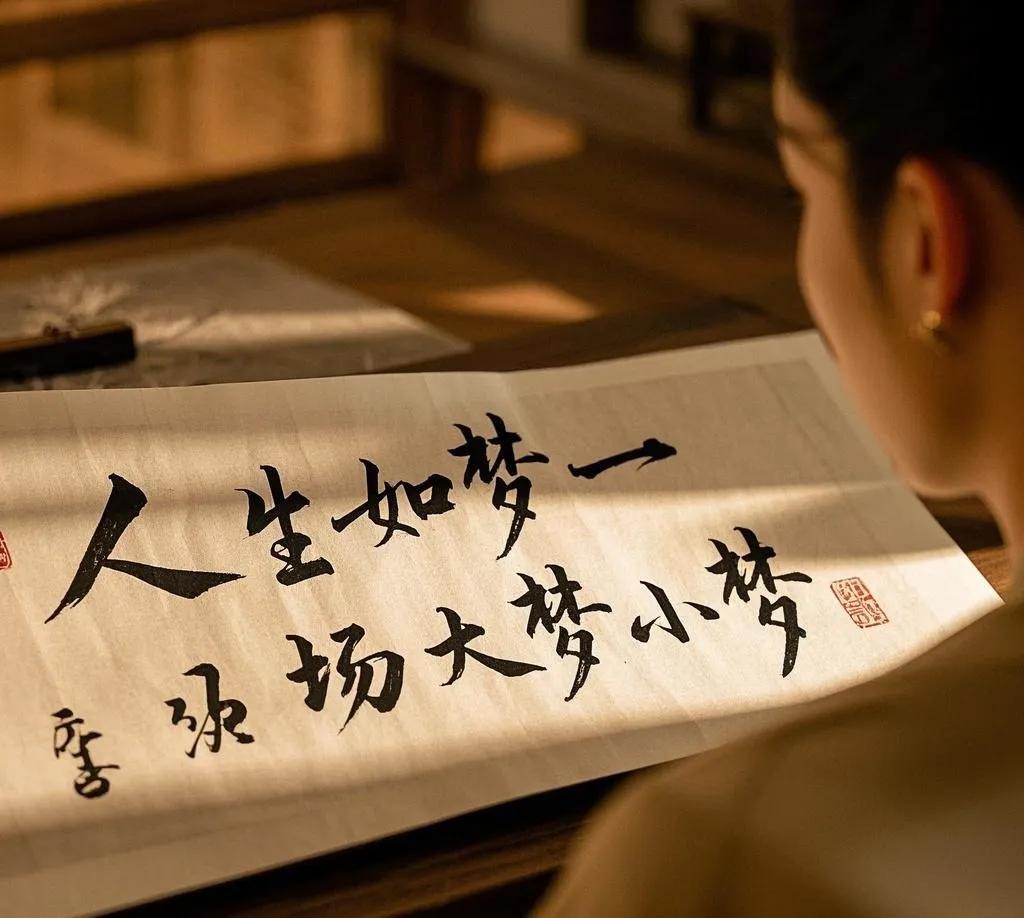 人生如梦一
场大梦小梦